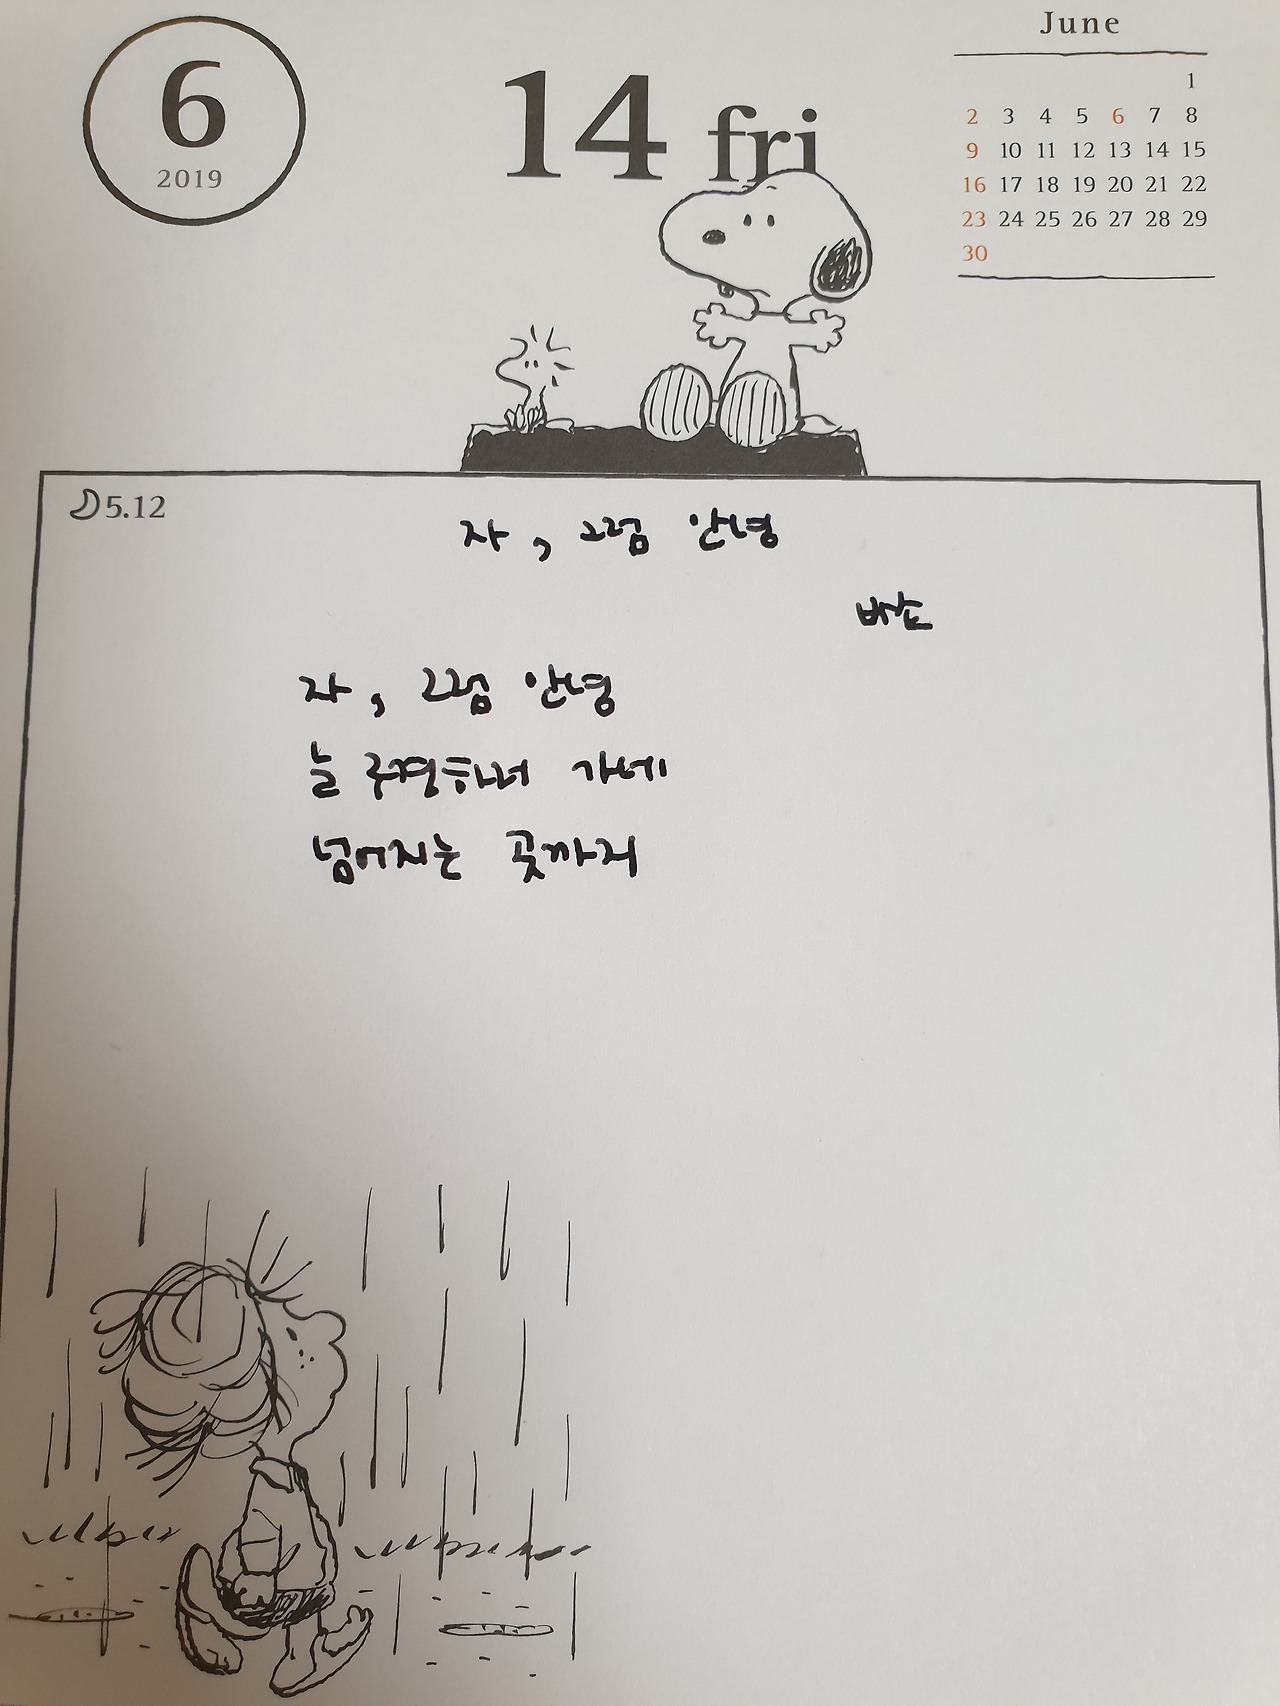 6
2019
14 fri
June
1
2 3 4 5 6 7 8
9 10 11 12 13 14 15
16 17 18 19 20 21 22
23 24 25 26 27 28 29
30
5.12
자, 그럼 안녕
바쇼
자, 그럼 안녕
눈 구경하러 가네
넘어지는 곳까지